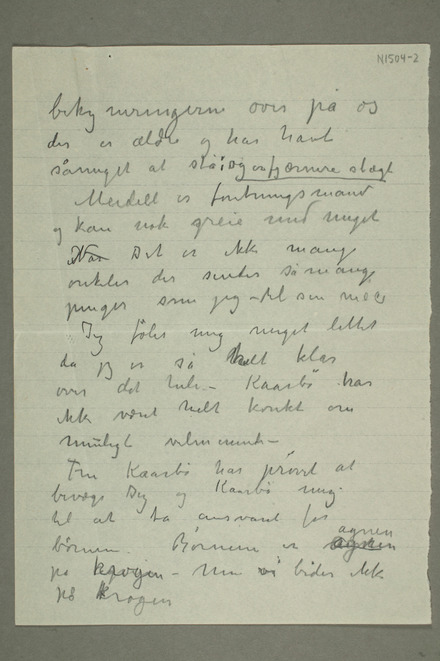 N1504-2
bekymringerne over på os
der er ældre og har havt
såmeget at stå i og en fjærnere slægt
Meidell er forretningsmand
og kan nok greie med meget
Det er ikke mange
onkler der sender så mange
penger som jeg – til sin niece
Jeg føler mig meget lettet
da jeg er så helt klar
over det hele – Kaarbø har
ikke vært helt korrekt om
muligt velmenende –
Fru Kaarbø har prøvet at
bevæge Dig og Kaarbø mig
til at ta ansvaret for
børnene. Børnene er agnen
på krogen – Men vi bider ikke
på krogen